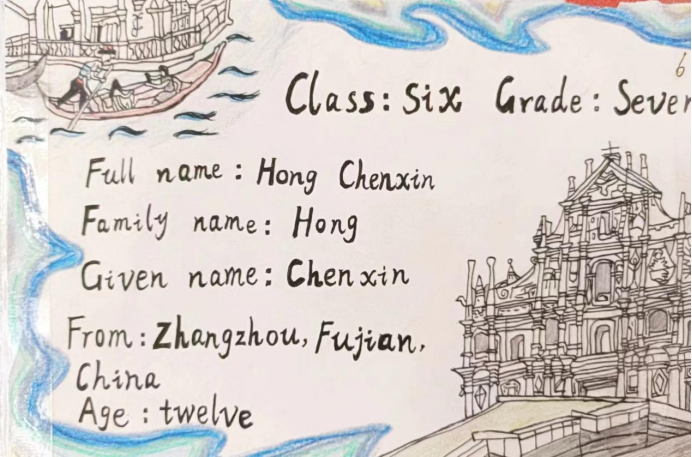 Class: Six Grade: Seven
Full name: Hong Chenxin
Family name: Hong
Given name: Chenxin
From: Zhangzhou, Fujian,
China
Age: twelve